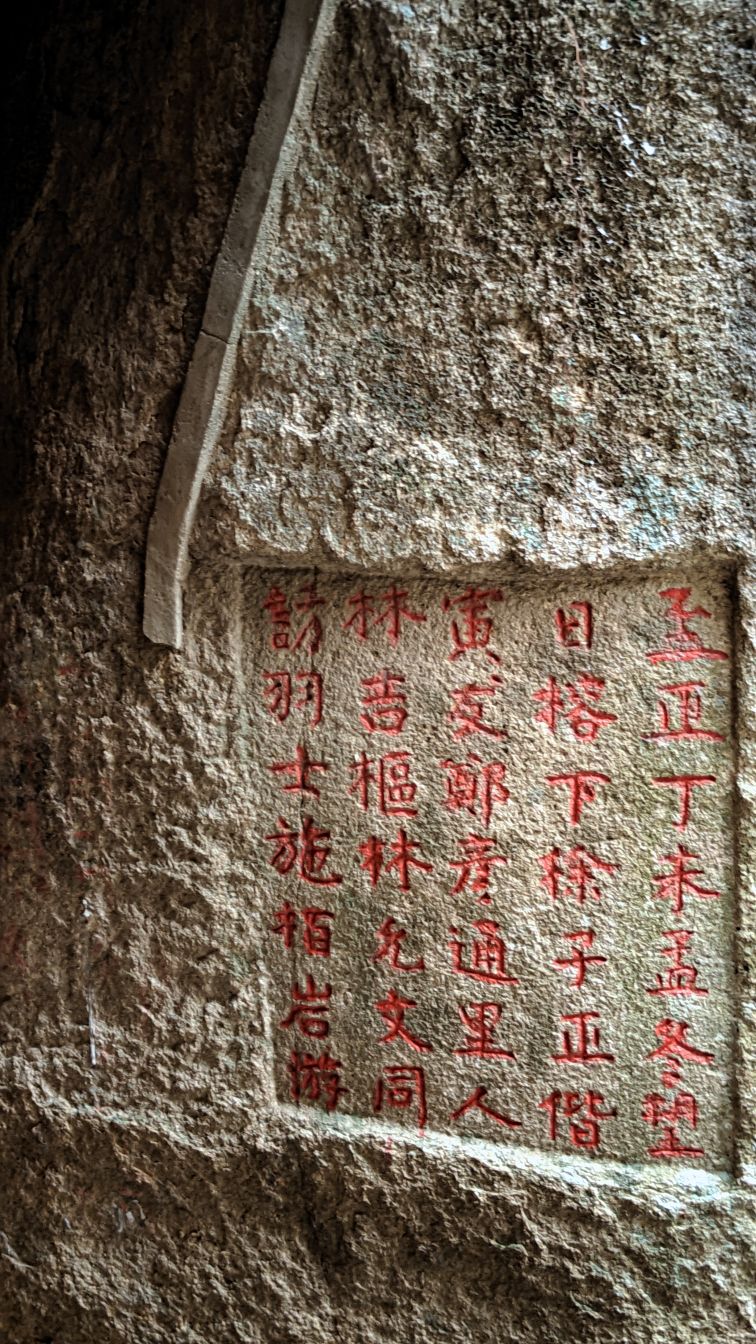 至正丁未孟冬望
日榕下徐子正偕
寅友鄭彦通里人
林吉樞林允文同
訪羽士施栢岩游